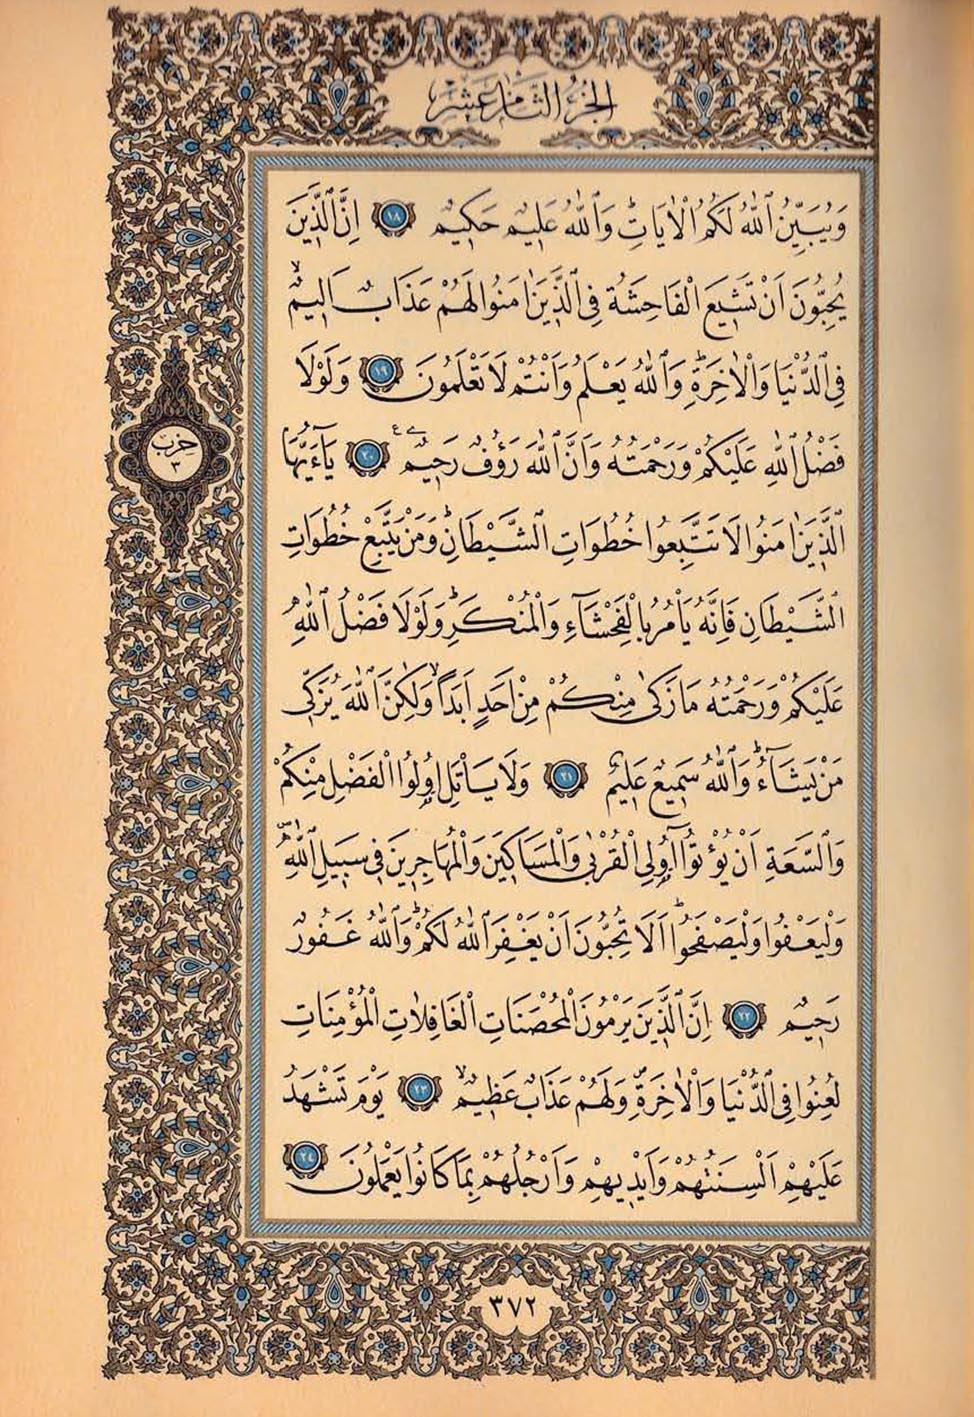 الجزء الثامن عشر
وَيُبَيِّنُ ٱللّٰهُ لَكُمُ الْاٰيَاتِۜ وَٱللّٰهُ عَلِيمٌ حَكِيمٌ ١٨ اِنَّ ٱلَّذِينَ
يُحِبُّونَ اَنْ تَشِيعَ الْفَاحِشَةُ فِي ٱلَّذِينَ اٰمَنُوا لَهُمْ عَذَابٌ اَلِيمٌۙ
فِي ٱلدُّنْيَا وَالْاٰخِرَةِۜ وَٱللّٰهُ يَعْلَمُ وَاَنْتُمْ لَا تَعْلَمُونَ ١٩ وَلَوْلَا
فَضْلُ ٱللّٰهِ عَلَيْكُمْ وَرَحْمَتُهُ وَاَنَّ ٱللّٰهَ رَؤُفٌ رَحِيمٌ ع ٢٠ يَٓا اَيُّهَا
ٱلَّذِينَ اٰمَنُوا لَا تَتَّبِعُوا خُطُوَاتِ ٱلشَّيْطَانِۜ وَمَنْ يَتَّبِعْ خُطُوَاتِ
حزب
٣
ٱلشَّيْطَانِ فَاِنَّهُ يَأْمُرُ بِالْفَحْشَٓاءِ وَالْمُنْكَرِۜ وَلَوْلَا فَضْلُ ٱللّٰهِ
عَلَيْكُمْ وَرَحْمَتُهُ مَا زَكٰى مِنْكُمْ مِنْ اَحَدٍ اَبَدًاۙ وَلٰكِنَّ ٱللّٰهَ يُزَكِّي
مَنْ يَشَٓاءُۜ وَٱللّٰهُ سَمِيعٌ عَلِيمٌ ٢١ وَلَا يَأْتَلِ اُو۬لُوا الْفَضْلِ مِنْكُمْ
وَٱلسَّعَةِ اَنْ يُؤْتُٓوا اُو۬لِي الْقُرْبٰى وَالْمَسَاكِينَ وَالْمُهَاجِرِينَ فِي سَبِيلِ ٱللّٰهِۖ
وَلْيَعْفُوا وَلْيَصْفَحُواۜ اَلَا تُحِبُّونَ اَنْ يَغْفِرَ ٱللّٰهُ لَكُمْۜ وَٱللّٰهُ غَفُورٌ
رَحِيمٌ ٢٢ اِنَّ ٱلَّذِينَ يَرْمُونَ الْمُحْصَنَاتِ الْغَافِلَاتِ الْمُؤْمِنَاتِ
لُعِنُوا فِي ٱلدُّنْيَا وَالْاٰخِرَةِۖ وَلَهُمْ عَذَابٌ عَظِيمٌۙ ٢٣ يَوْمَ تَشْهَدُ
عَلَيْهِمْ اَلْسِنَتُهُمْ وَاَيْدِيهِمْ وَاَرْجُلُهُمْ بِمَا كَانُوا يَعْمَلُونَ ٢٤
٣٧٢